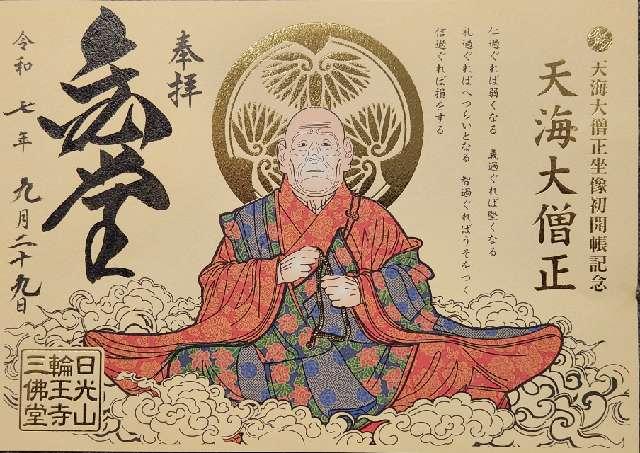 天海大僧正坐像初開帳記念
天海大僧正
仁過ぐれば弱くなる 義過ぐれば堅くなる
礼過ぐればへつらいとなる 智過ぐればうそをつく
信過ぐれば損をする
奉拝
堂
令和七年 九月二十九日
日光山
輪王寺
三佛堂